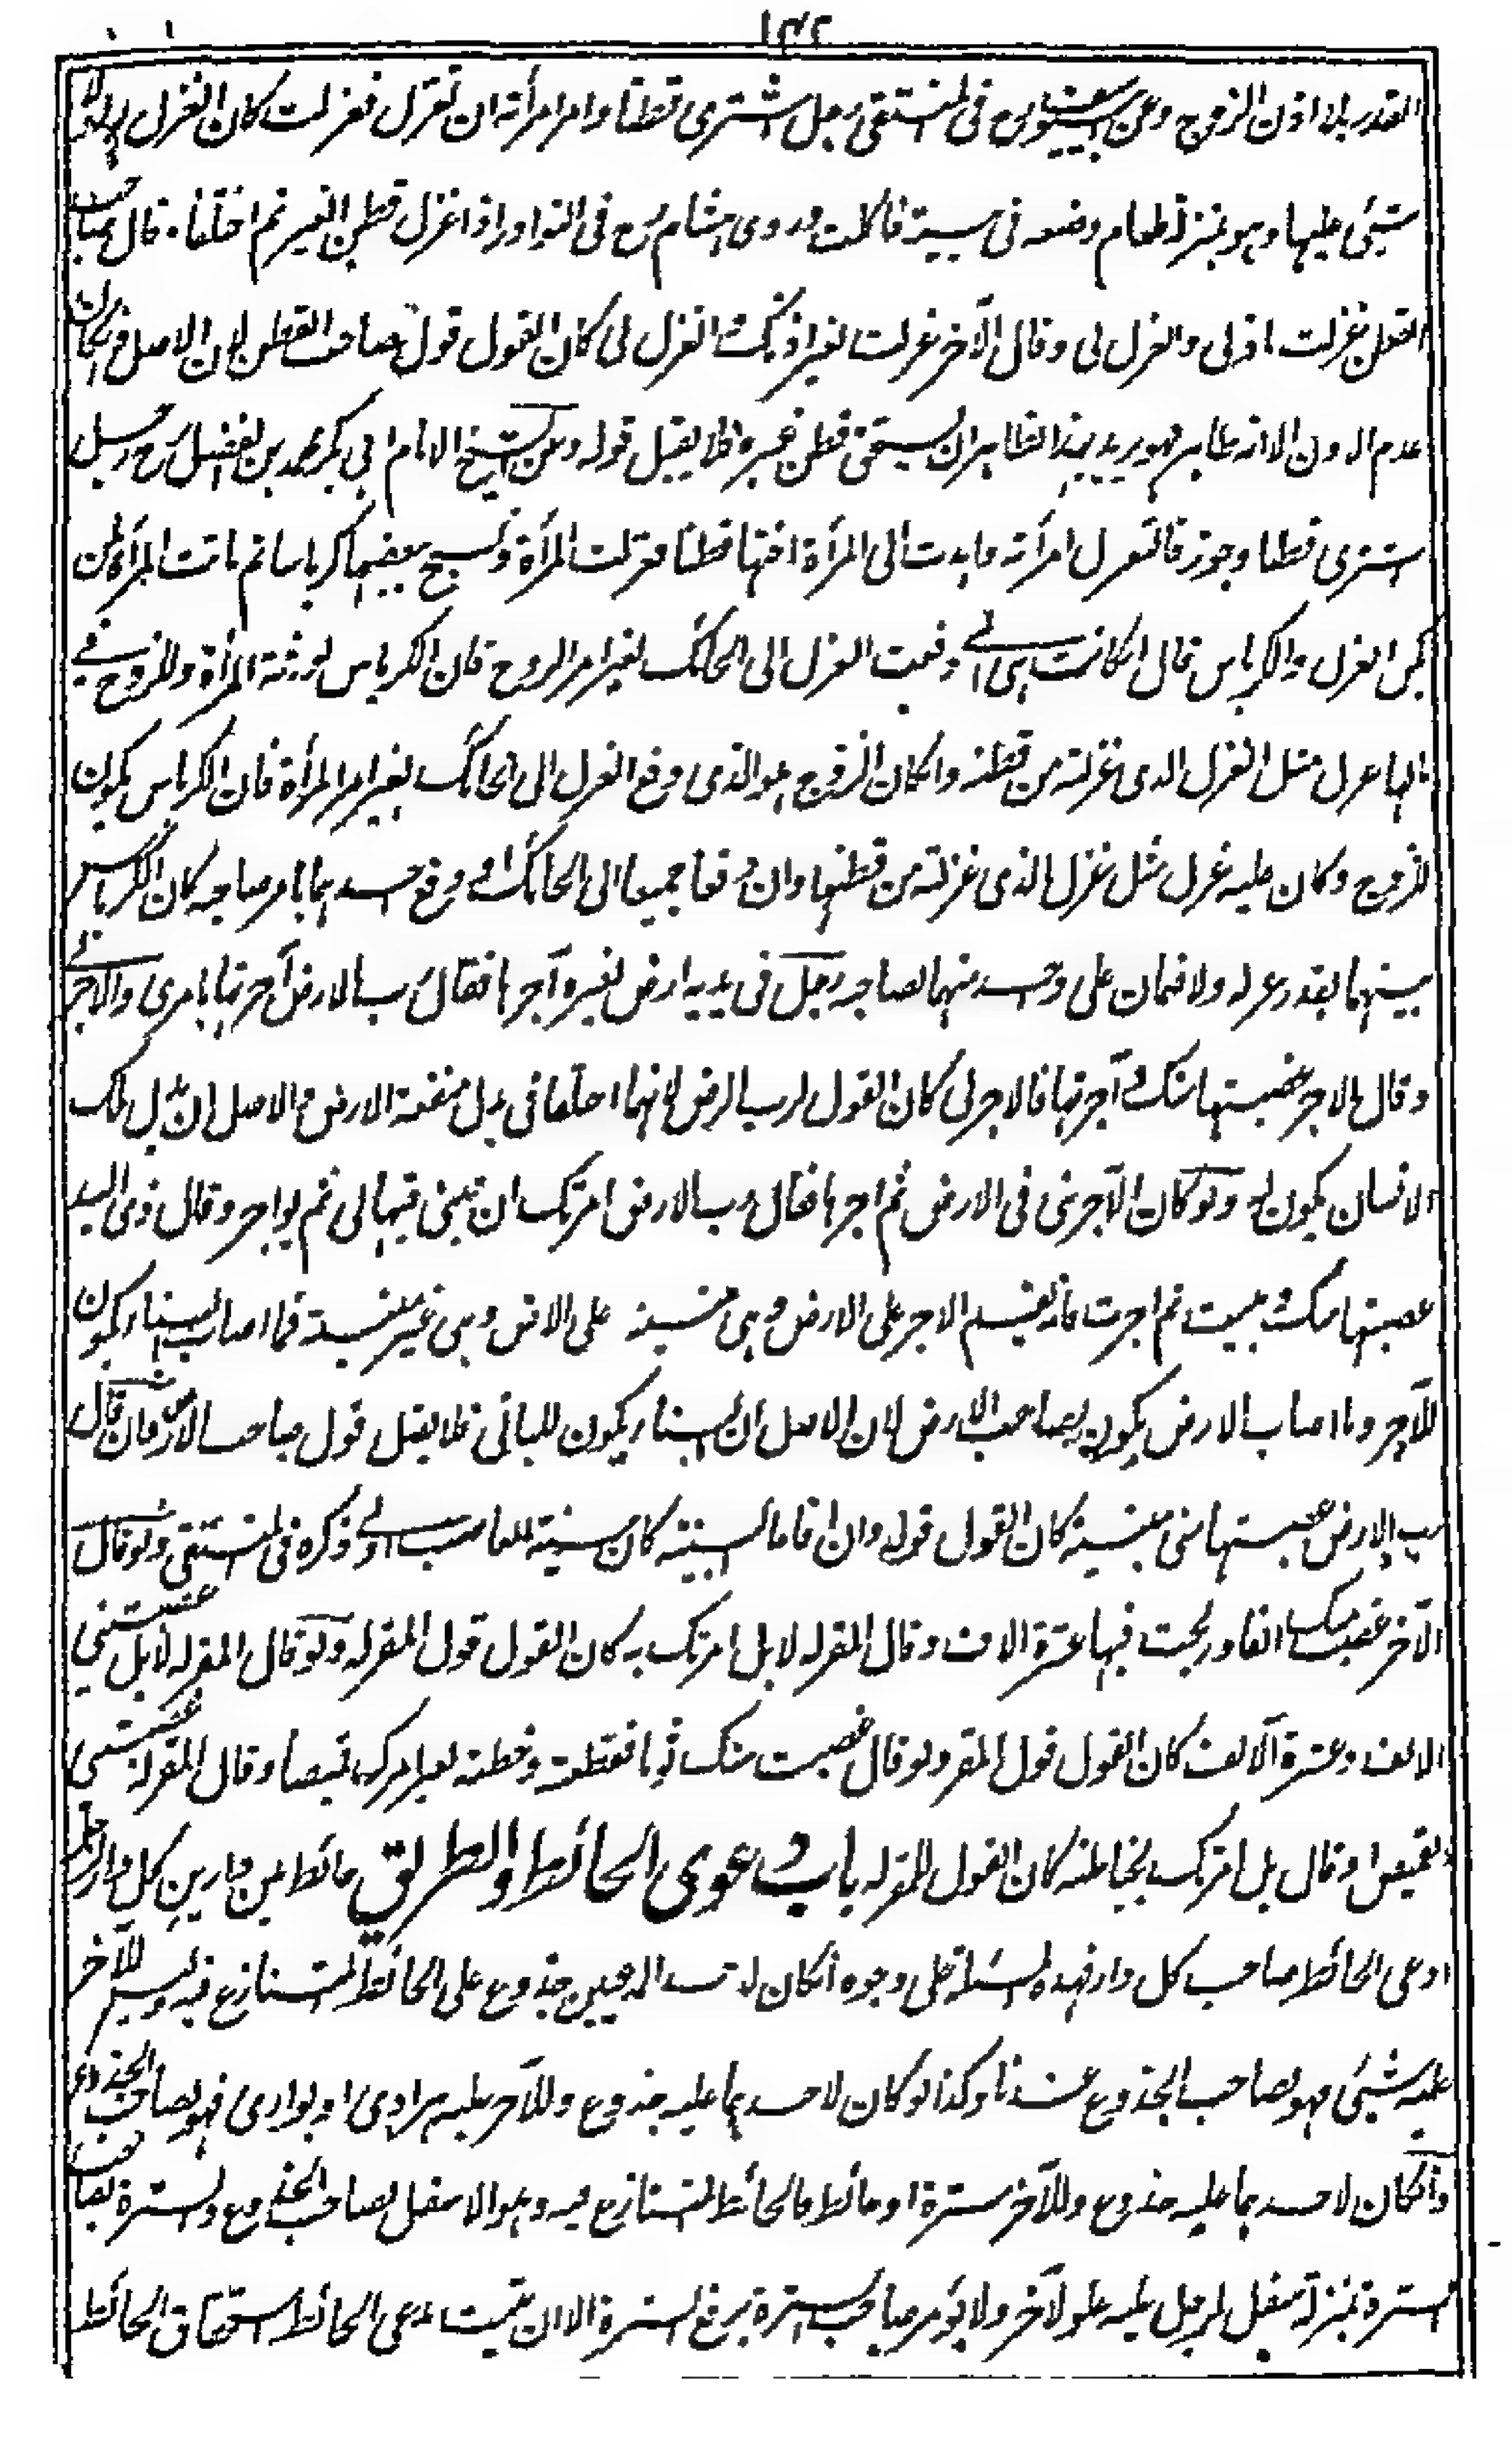 ١٣٢
القدر بلا اذن الزوج وعن في المنتقى رجل اشترى قطنا وامر امرأته ان تغزل فغزلت كان الغزل له ولا
شيء عليها وهو بمنزلة طعام وضعه في بيته فاكلت وروى هشام رح في النوادر اذا غزل قطن الغير ثم اختلفا قال صاحب
القطن غزلت باذني والغزل لي وقال الآخر غزلت بغير اذنك فالغزل لي كان القول قول صاحب القطن لان الاصل وان كان
عدم الاذن الا انه ظاهر فهو يريد بهذا الظاهر ان يستحق قطن غيره فلا يقبل قوله وعن الشيخ الامام ابي بكر محمد بن الفضل رح رجل
اشترى قطنا وجوزقا لتغزل امرأته فاهدت الى المرأة اختها قطنا فغزلت المرأة ونسج بعضهما كرباسا ثم ماتت المرأة لمن
يكون الغزل والكرباس قال ان كانت هي التي دفعت الغزل الى الحائك بغير امر الزوج فان الكرباس لورثة المرأة وللزوج في
مالها غزل مثل الغزل الذي غزلته من قطنه وان كان الزوج هو الذي دفع الغزل الى الحائك بغير امر المرأة فان الكرباس يكون
للزوج وكان عليه غزل مثل غزل الذي غزلته من قطنها وان دفعا جميعا الى الحائك او دفع احدهما بامر صاحبه كان الكرباس
بينهما بقدر غزله ولا ضمان على واحد منهما لصاحبه رجل في يديه ارض لغيره آجرها فقال رب الارض آجرتها بامري والاجر لي
وقال الآجر غصبتها منك وآجرتها فالاجر لي كان القول لرب الارض لانهما اختلفا في بدل منفعة الارض والاصل ان بدل ملك
الانسان يكون له ولو كان الآجر بنى في الارض ثم اجرها فقال رب الارض امرتك ان تبني فيها لي ثم يواجر وقال ذي اليد
غصبتها منك وبنيت ثم اجرت فانه يقسم الاجر على الارض وهي مبنية على الارض وهي غير مبنية فما اصاب البناء يكون
للآجر وما اصاب الارض يكون لصاحب الارض لان الاصل ان البناء يكون للباني فلا يقبل قول صاحب الارض وان قال
رب الارض غصبتها مني مبنية كان القول قوله وان اقاما البينة كان بينة الغاصب اولى ذكره في المنتقى ولو قال
الآخر غصبت منك الفا وربحت فيها عشرة آلاف وقال المقر له لا بل امرتك به كان القول قول المقر له ولو قال المقر له لا بل غصبتني
الالف وعشرة آلاف كان القول قول المقر ولو قال غصبت منك ثوبا فقطعته وخطته بغير امرك قميصا وقال المقر له غصبتني
القميص او قال بل امرتك بخياطته كان القول للمقر له باب دعوى الحائط والطريق حائط بين دارين كل دار لرجل
ادعى الحائط صاحب كل دار فهذه المسئلة على وجوه ان كان لاحد المدعيين جذوع على الحائط المتنازع فيه وليس للآخر
عليه شيء فهو لصاحب الجذوع عندنا وكذا لو كان لاحدهما عليه جذوع وللآخر عليه هرادي او بواري فهو لصاحب الجذوع
وان كان لاحدهما عليه جذوع وللآخر سترة او حائط فالحائط المتنازع فيه وهو الاسفل لصاحب الجذوع والسترة لصاحب
السترة بمنزلة سفل لرجل عليه علو لآخر ولا يؤمر صاحب السترة برفع السترة الا ان يثبت مدعي الحائط استحقاق الحائط